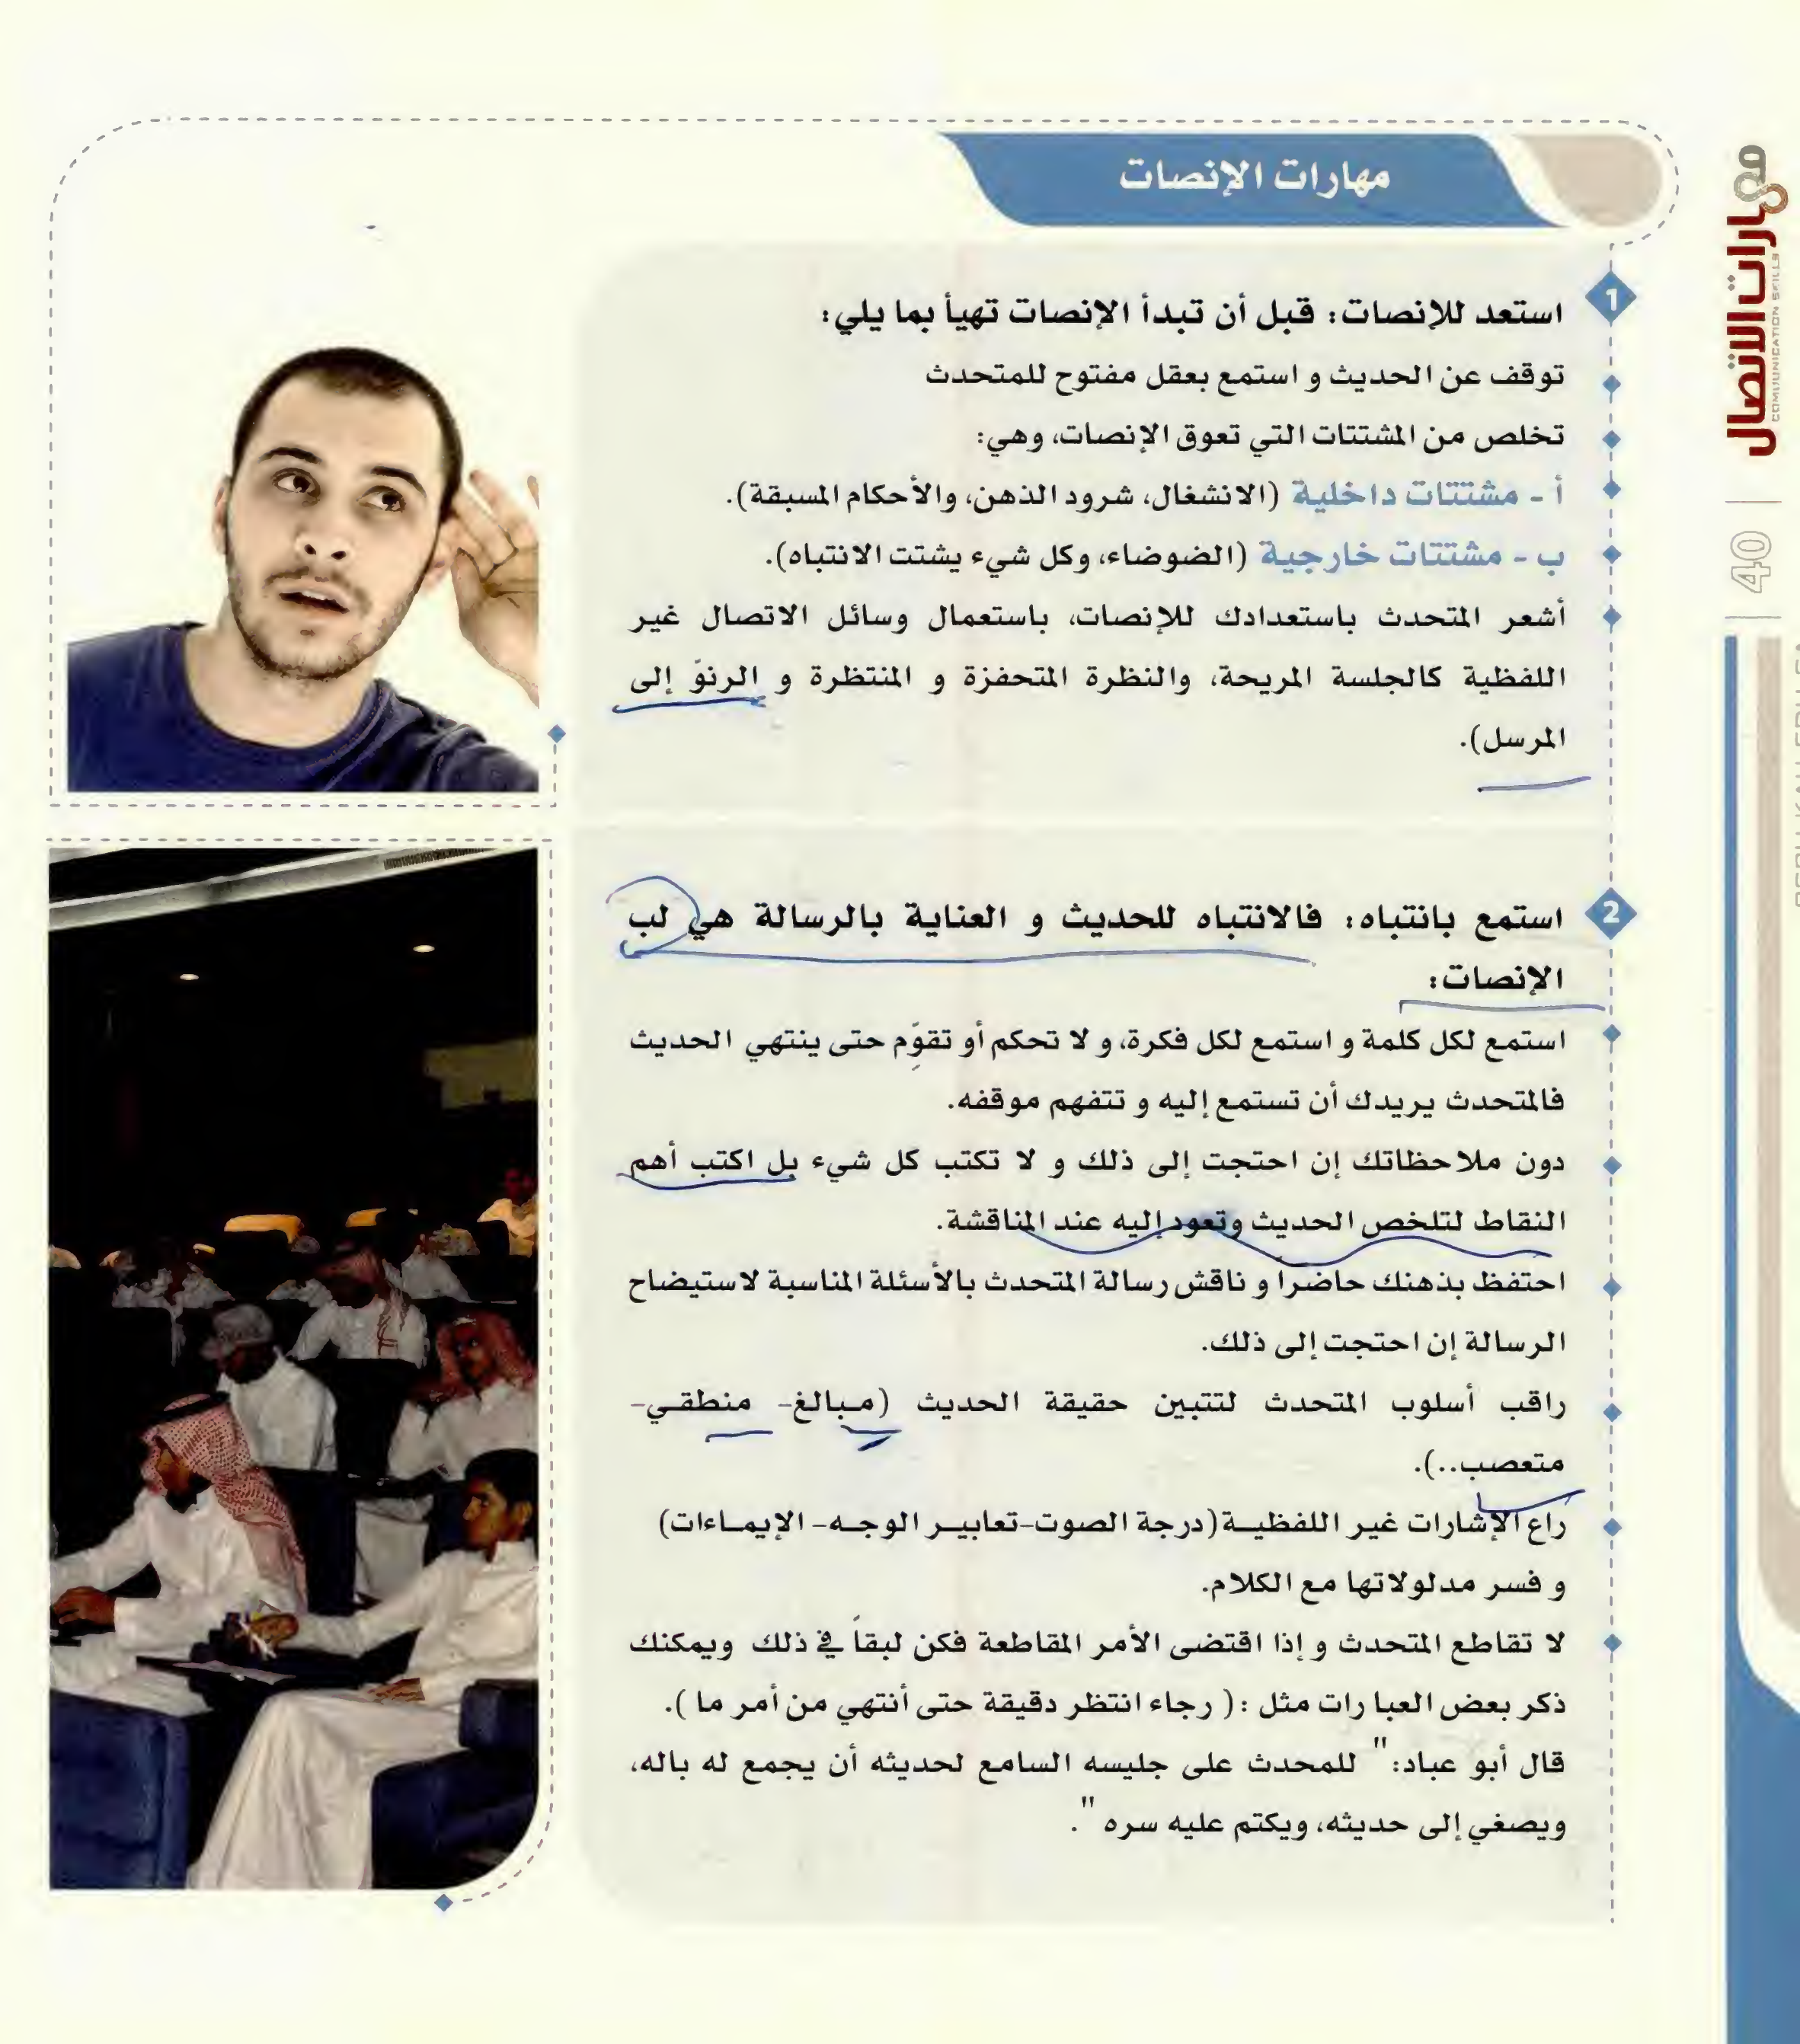 مهارات الإنصات
مهارات الاتصال
COMMUNICATION SKILLS
40
1
استعد للإنصات: قبل أن تبدأ الإنصات تهيأ بما يلي:
توقف عن الحديث و استمع بعقل مفتوح للمتحدث
تخلص من المشتتات التي تعوق الإنصات، وهي:
أ - مشتتات داخلية (الانشغال، شرود الذهن، والأحكام المسبقة).
ب - مشتتات خارجية (الضوضاء، وكل شيء يشتت الانتباه).
أشعر المتحدث باستعدادك للإنصات، باستعمال وسائل الاتصال غير
اللفظية كالجلسة المريحة، والنظرة المتحفزة و المنتظرة و الرنوّ إلى
المرسل).
2
استمع بانتباه: فالانتباه للحديث و العناية بالرسالة هي لب
الإنصات:
استمع لكل كلمة و استمع لكل فكرة، و لا تحكم أو تقوِّم حتى ينتهي الحديث
فالمتحدث يريدك أن تستمع إليه و تتفهم موقفه.
دون ملاحظاتك إن احتجت إلى ذلك و لا تكتب كل شيء بل اكتب أهم
النقاط لتلخص الحديث وتعود إليه عند المناقشة.
احتفظ بذهنك حاضراً و ناقش رسالة المتحدث بالأسئلة المناسبة لاستيضاح
الرسالة إن احتجت إلى ذلك.
راقب أسلوب المتحدث لتتبين حقيقة الحديث (مبالغ- منطقي-
متعصب..).
راع الإشارات غير اللفظية (درجة الصوت-تعابير الوجه- الإيماءات)
و فسر مدلولاتها مع الكلام.
لا تقاطع المتحدث و إذا اقتضى الأمر المقاطعة فكن لبقاً في ذلك ويمكنك
ذكر بعض العبارات مثل : ( رجاء انتظر دقيقة حتى أنتهي من أمر ما ).
قال أبو عباد: " للمحدث على جليسه السامع لحديثه أن يجمع له باله،
ويصغي إلى حديثه، ويكتم عليه سره ".